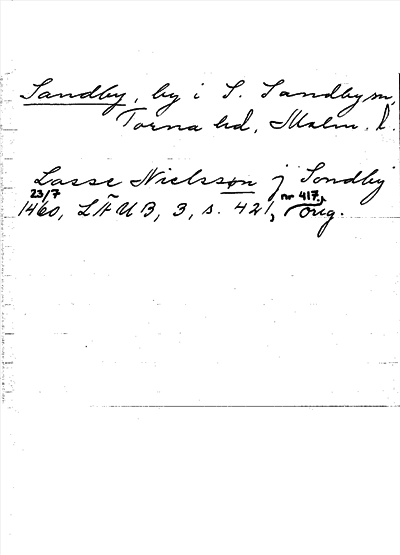 Sandby, by i S. Sandby sn,
Torna hd, Malm. l.
Lasse Nielsson j Sondby
23/7 nr 417,
1460, LÄUB, 3, s. 421, orig.